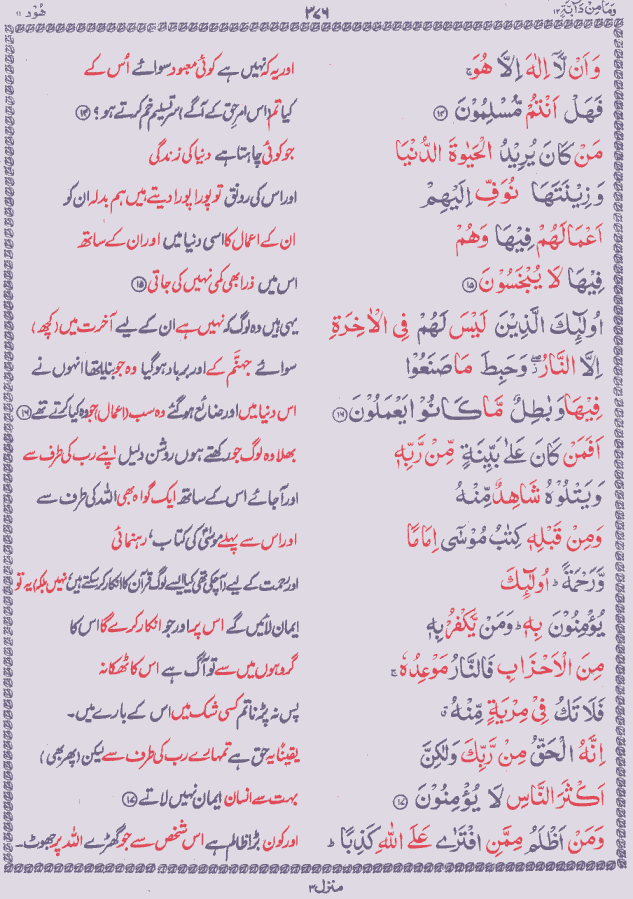 وَمَا مِنْ دَآبَّةٍ ۱۲ ۳۷۶ هُوْد ۱۱
وَاَنْ لَّاۤ اِلٰهَ اِلَّا هُوَ ۚ اور یہ کہ نہیں ہے کوئی معبود سوائے اُس کے
فَهَلْ اَنْتُمْ مُّسْلِمُوْنَ ۱۴ کیا تم اس امرِ حق کے آگے سرِتسلیم خم کرتے ہو؟ ۱۴
مَنْ كَانَ يُرِيْدُ الْحَيٰوةَ الدُّنْيَا جو کوئی چاہتا ہے دنیا کی زندگی
وَزِيْنَتَهَا نُوَفِّ اِلَيْهِمْ اور اس کی رونق تو پورا پورا دیتے ہیں ہم بدلہ ان کو
اَعْمَالَهُمْ فِيْهَا وَهُمْ ان کے اعمال کا اسی دنیا میں اور ان کے ساتھ
فِيْهَا لَا يُبْخَسُوْنَ ۱۵ اس میں ذرا بھی کمی نہیں کی جاتی ۱۵
اُولٰٓئِكَ الَّذِيْنَ لَيْسَ لَهُمْ فِى الْاٰخِرَةِ یہی ہیں وہ لوگ کہ نہیں ہے ان کے لیے آخرت میں (کچھ)
اِلَّا النَّارُ ۖ وَحَبِطَ مَا صَنَعُوْا سوائے جہنّم کے اور برباد ہوگیا وہ جو بنایا تھا انہوں نے
فِيْهَا وَبٰطِلٌ مَّا كَانُوْا يَعْمَلُوْنَ ۱۶ اس دنیا میں اور ضائع ہوگئے وہ سب (اعمال) جو وہ کیا کرتے تھے ۱۶
اَفَمَنْ كَانَ عَلٰى بَيِّنَةٍ مِّنْ رَّبِّهٖ بھلا وہ لوگ جو رکھتے ہوں روشن دلیل اپنے رب کی طرف سے
وَيَتْلُوْهُ شَاهِدٌ مِّنْهُ اور آجائے اس کے ساتھ ایک گواہ بھی اللہ کی طرف سے
وَمِنْ قَبْلِهٖ كِتٰبُ مُوْسٰٓى اِمَامًا اور اس سے پہلے موسیٰؑ کی کتاب، رہنمائی
وَّرَحْمَةً ؕ اُولٰٓئِكَ اور رحمت کے لیے (آچکی تھی کیا ایسے لوگ قرآن کا انکار کرسکتے ہیں؟ نہیں بلکہ) یہ تو
يُؤْمِنُوْنَ بِهٖ ؕ وَمَنْ يَّكْفُرْ بِهٖ ایمان لائیں گے اس پر اور جو انکار کرے گا اس کا
مِنَ الْاَحْزَابِ فَالنَّارُ مَوْعِدُهٗ ۚ گروہوں میں سے تو آگ ہے اس کا ٹھکانہ
فَلَا تَكُ فِىْ مِرْيَةٍ مِّنْهُ ۚ پس نہ پڑنا تم کسی شک میں اس کے بارے میں۔
اِنَّهُ الْحَقُّ مِنْ رَّبِّكَ وَلٰكِنَّ یقیناً یہ حق ہے تمہارے رب کی طرف سے لیکن (پھر بھی)
اَكْثَرَ النَّاسِ لَا يُؤْمِنُوْنَ ۱۷ بہت سے انسان ایمان نہیں لاتے ۱۷
وَمَنْ اَظْلَمُ مِمَّنِ افْتَرٰى عَلَى اللّٰهِ كَذِبًا ؕ اور کون بڑا ظالم ہے اس شخص سے جو گھڑے اللہ پر جھوٹ۔
منزل ۳